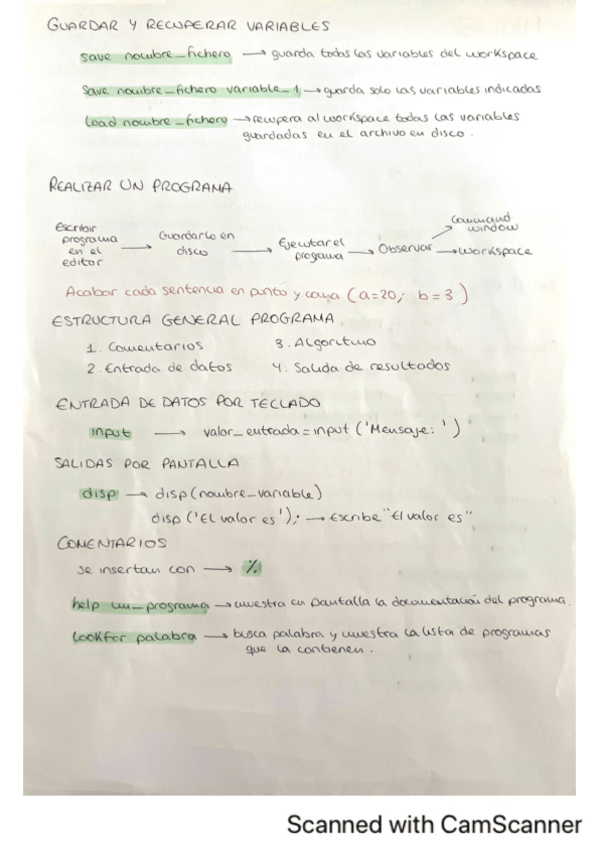 GUARDAR Y RECUPERAR VARIABLES
save nombre_fichero → guarda todas las variables del workspace
Save nombre_fichero variable_1 → guarda solo las variables indicadas
Load nombre_fichero → recupera al workspace todas las variables
guardadas en el archivo en disco.
REALIZAR UN PROGRAMA
Escribir programa en el editor → Guardarlo en disco → Ejecutar el programa → Observar → Command window
→ Workspace
Acabar cada sentencia en punto y coma (a=20; b=3)
ESTRUCTURA GENERAL PROGRAMA
1. Comentarios 3. Algoritmo
2. Entrada de datos 4. Salida de resultados
ENTRADA DE DATOS POR TECLADO
input → valor_entrada = input ('Mensaje: ')
SALIDAS POR PANTALLA
disp → disp(nombre_variable)
disp ('El valor es'); → Escribe "El valor es"
COMENTARIOS
se insertan con → %
help un_programa → muestra en pantalla la documentación del programa.
lookfor palabra → busca palabra y muestra la lista de programas
que la contienen.
Scanned with CamScanner